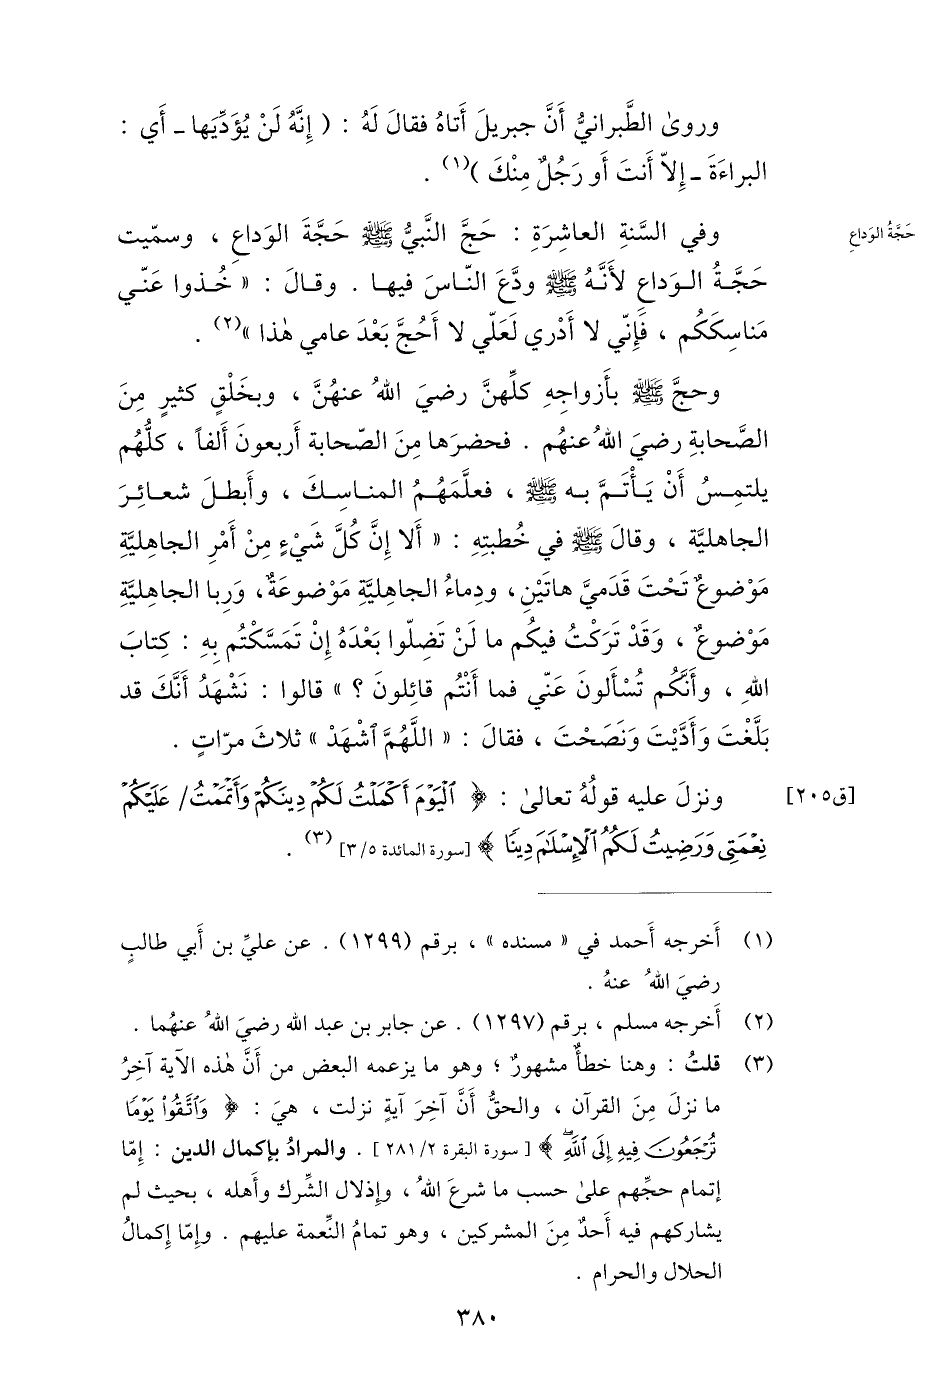 وروىٰ الطَّبرانيُّ أَنَّ جبريلَ أَتاهُ فقالَ لَهُ : ( إِنَّهُ لَنْ يُؤَدِّيَها ـ أَي :
البراءَةَ ـ إِلاّ أَنتَ أَو رَجُلٌ مِنْكَ )(١) .
حَجَّةُ الوَداعِ
وفي السَّنةِ العاشِرَةِ : حَجَّ النَّبيُّ ﷺ حَجَّةَ الوَداعِ ، وسمّيت
حَجَّـةُ الـوَداعِ لأَنَّـهُ ﷺ ودَّعَ النّـاسَ فيهـا . وقـالَ : « خُـذوا عَنّـي
مَناسِكَكُم ، فَإِنّي لا أَدْري لَعَلّي لا أَحُجَّ بَعْدَ عامي هٰذا »(٢) .
وحجَّ ﷺ بأَزواجِهِ كلِّهنَّ رضيَ اللهُ عنهُنَّ ، وبخَلْقٍ كثيرٍ مِنَ
الصَّحابةِ رضيَ اللهُ عنهُم . فحضرَها مِنَ الصّحابة أَربعونَ أَلفاً ، كلُّهُم
يلتمِـسُ أَنْ يَـأْتَـمَّ بـه ﷺ ، فعلَّمَهُـمُ المنـاسِـكَ ، وأَبطـلَ شعـائِـرَ
الجاهليَّة ، وقالَ ﷺ في خُطبتِهِ : « أَلا إِنَّ كُلَّ شَيْءٍ مِنْ أَمْرِ الجاهِليَّةِ
مَوْضوعٌ تَحْتَ قَدَميَّ هاتَيْنِ ، ودِماءُ الجاهِليَّةِ مَوْضوعَةٌ، وَرِبا الجاهِليَّةِ
مَوْضوعٌ ، وَقَدْ تَرَكْتُ فيكُم ما لَنْ تَضِلّوا بَعْدَهُ إِنْ تَمَسَّكْتُم بِهِ : كِتابَ
اللهِ ، وأَنَّكُم تُسْأَلونَ عَنّي فما أَنْتُم قائِلونَ ؟ » قالوا : نَشْهَدُ أَنَّكَ قد
بَلَّغْتَ وَأَدَّيْتَ وَنَصَحْتَ ، فقالَ : « اللَّهُمَّ ٱشْهَدْ » ثلاثَ مرّاتٍ .
[ق٢٠٥]
ونزلَ عليه قولُهُ تعالىٰ : ﴿ ٱلْيَوْمَ أَكْمَلْتُ لَكُمْ دِينَكُمْ وَأَتْمَمْتُ / عَلَيْكُمْ
نِعْمَتِى وَرَضِيتُ لَكُمُ ٱلْإِسْلَٰمَ دِينًا ﴾ [سورة المائدة ٣/٥](٣) .
(١) أَخرجه أَحمد في « مسنده » ، برقم (١٢٩٩) . عن عليِّ بن أَبي طالبٍ
رضيَ اللهُ عنهُ .
(٢) أَخرجه مسلم ، برقم (١٢٩٧) . عن جابر بن عبد الله رضيَ اللهُ عنهُما .
(٣) قلتُ : وهنا خطأٌ مشهورٌ ؛ وهو ما يزعمه البعض من أَنَّ هٰذه الآية آخِرُ
ما نزلَ مِنَ القرآن ، والحقُّ أَنَّ آخِرَ آيةٍ نزلت ، هيَ : ﴿ وَٱتَّقُوا۟ يَوْمًا
تُرْجَعُونَ فِيهِ إِلَى ٱللَّهِ ﴾ [ سورة البقرة ٢٨١/٢ ] . والمرادُ بإكمال الدين : إِمّا
إِتمام حجِّهم علىٰ حسب ما شرعَ اللهُ ، وإِذلال الشِّرك وأَهله ، بحيث لم
يشاركهم فيه أَحدٌ مِنَ المشركين ، وهو تمامُ النِّعمة عليهم . وإِمّا إِكمالُ
الحلال والحرام .
٣٨٠